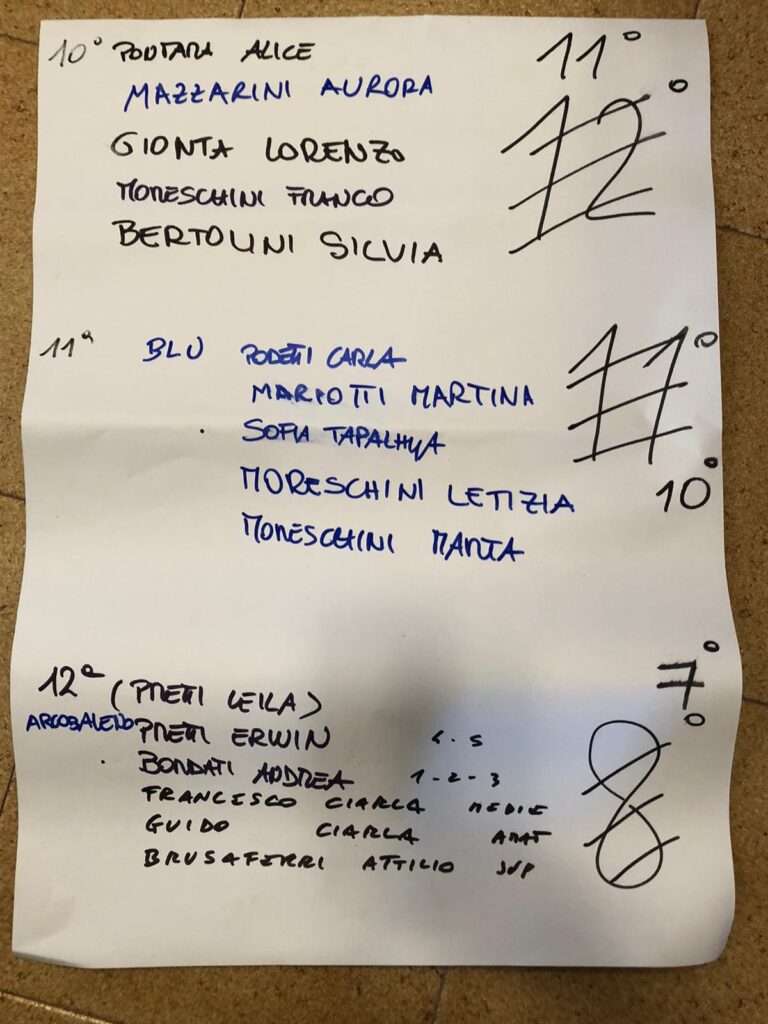 10° PONTARA ALICE 11°
MAZZARINI AURORA 12°
GIONTA LORENZO
MORESCHINI FRANCO
BERTOLINI SILVIA
11ª BLU PODETTI CARLA 11°
MARIOTTI MARTINA
SOFIA
MORESCHINI LETIZIA 10°
MORESCHINI MARTA
12ª (PRETTI LEILA) 7°
ARCOBALENO PRETTI ERWIN 4-5 8°
BONDATI ANDREA 1-2-3
FRANCESCO CIARLA MEDIE
GUIDO CIARLA
BRUSAFERRI ATTILIO